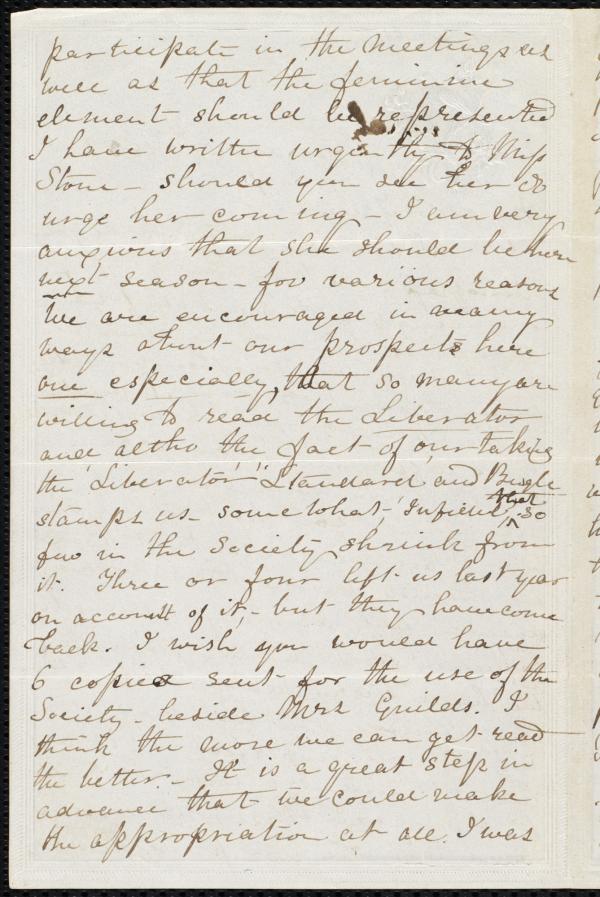 participate in the meetings as
well as that the feminine
element should be represented
I have written urgently to Miss
Stone - should you see her do
urge her coming - I am very
anxious that she should be here
next season - for various reasons
We are encouraged in many
ways about our prospects here
one especially, that so many are
willing to read the Liberator
and altho the fact of our taking
the 'Liberator' "Standard, and Bugle
stamps us - somewhat, 'Infidel', that so
few in the Society shrink from
it. Three or four left us last year
on account of it, - but they have come
back. I wish you would have
6 copies sent for the use of the
Society - beside Mrs Guilds. I
think the more we can get read
the better. - It is a great step in
advance that we could make
the appropriation at all. I was